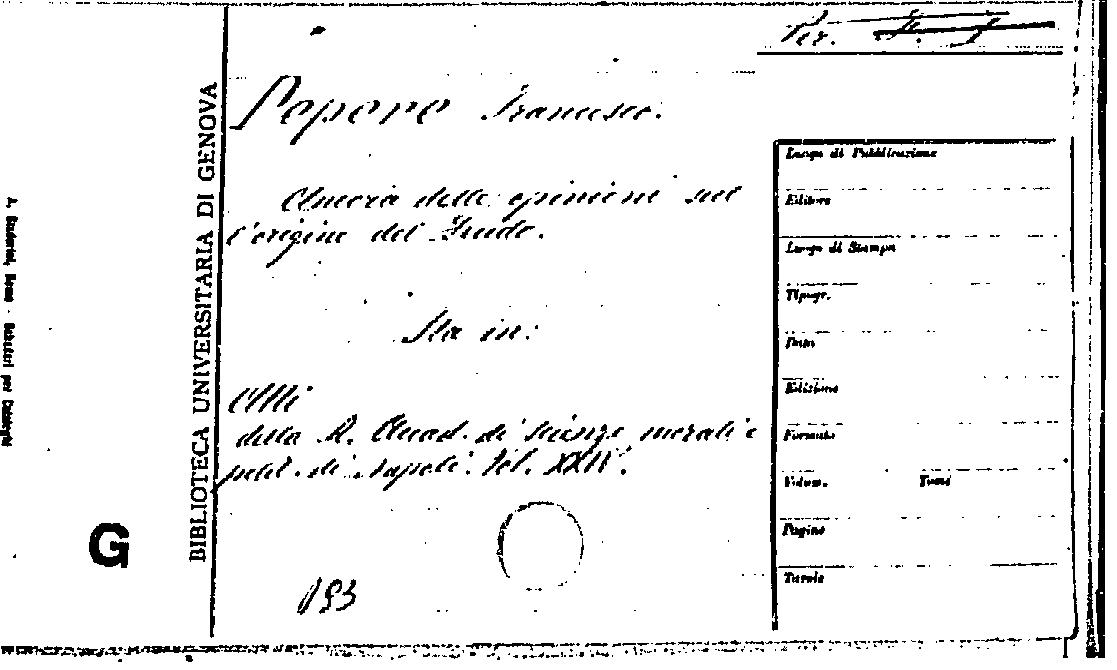 Per.
Pepere Francesco.
delle opinioni sul
l'origine del Feudo.
Sta in:
Atti
della R. Accad. di scienze morali e
polit. di Napoli. Vol. XXIV.
193
BIBLIOTECA UNIVERSITARIA DI GENOVA
G
Luogo di Pubblicazione
Editore
Luogo di Stampa
Tipogr.
Data
Edizione
Formato
Volum. Tomi
Pagine
Tavole
Roma - Schedari per Cataloghi